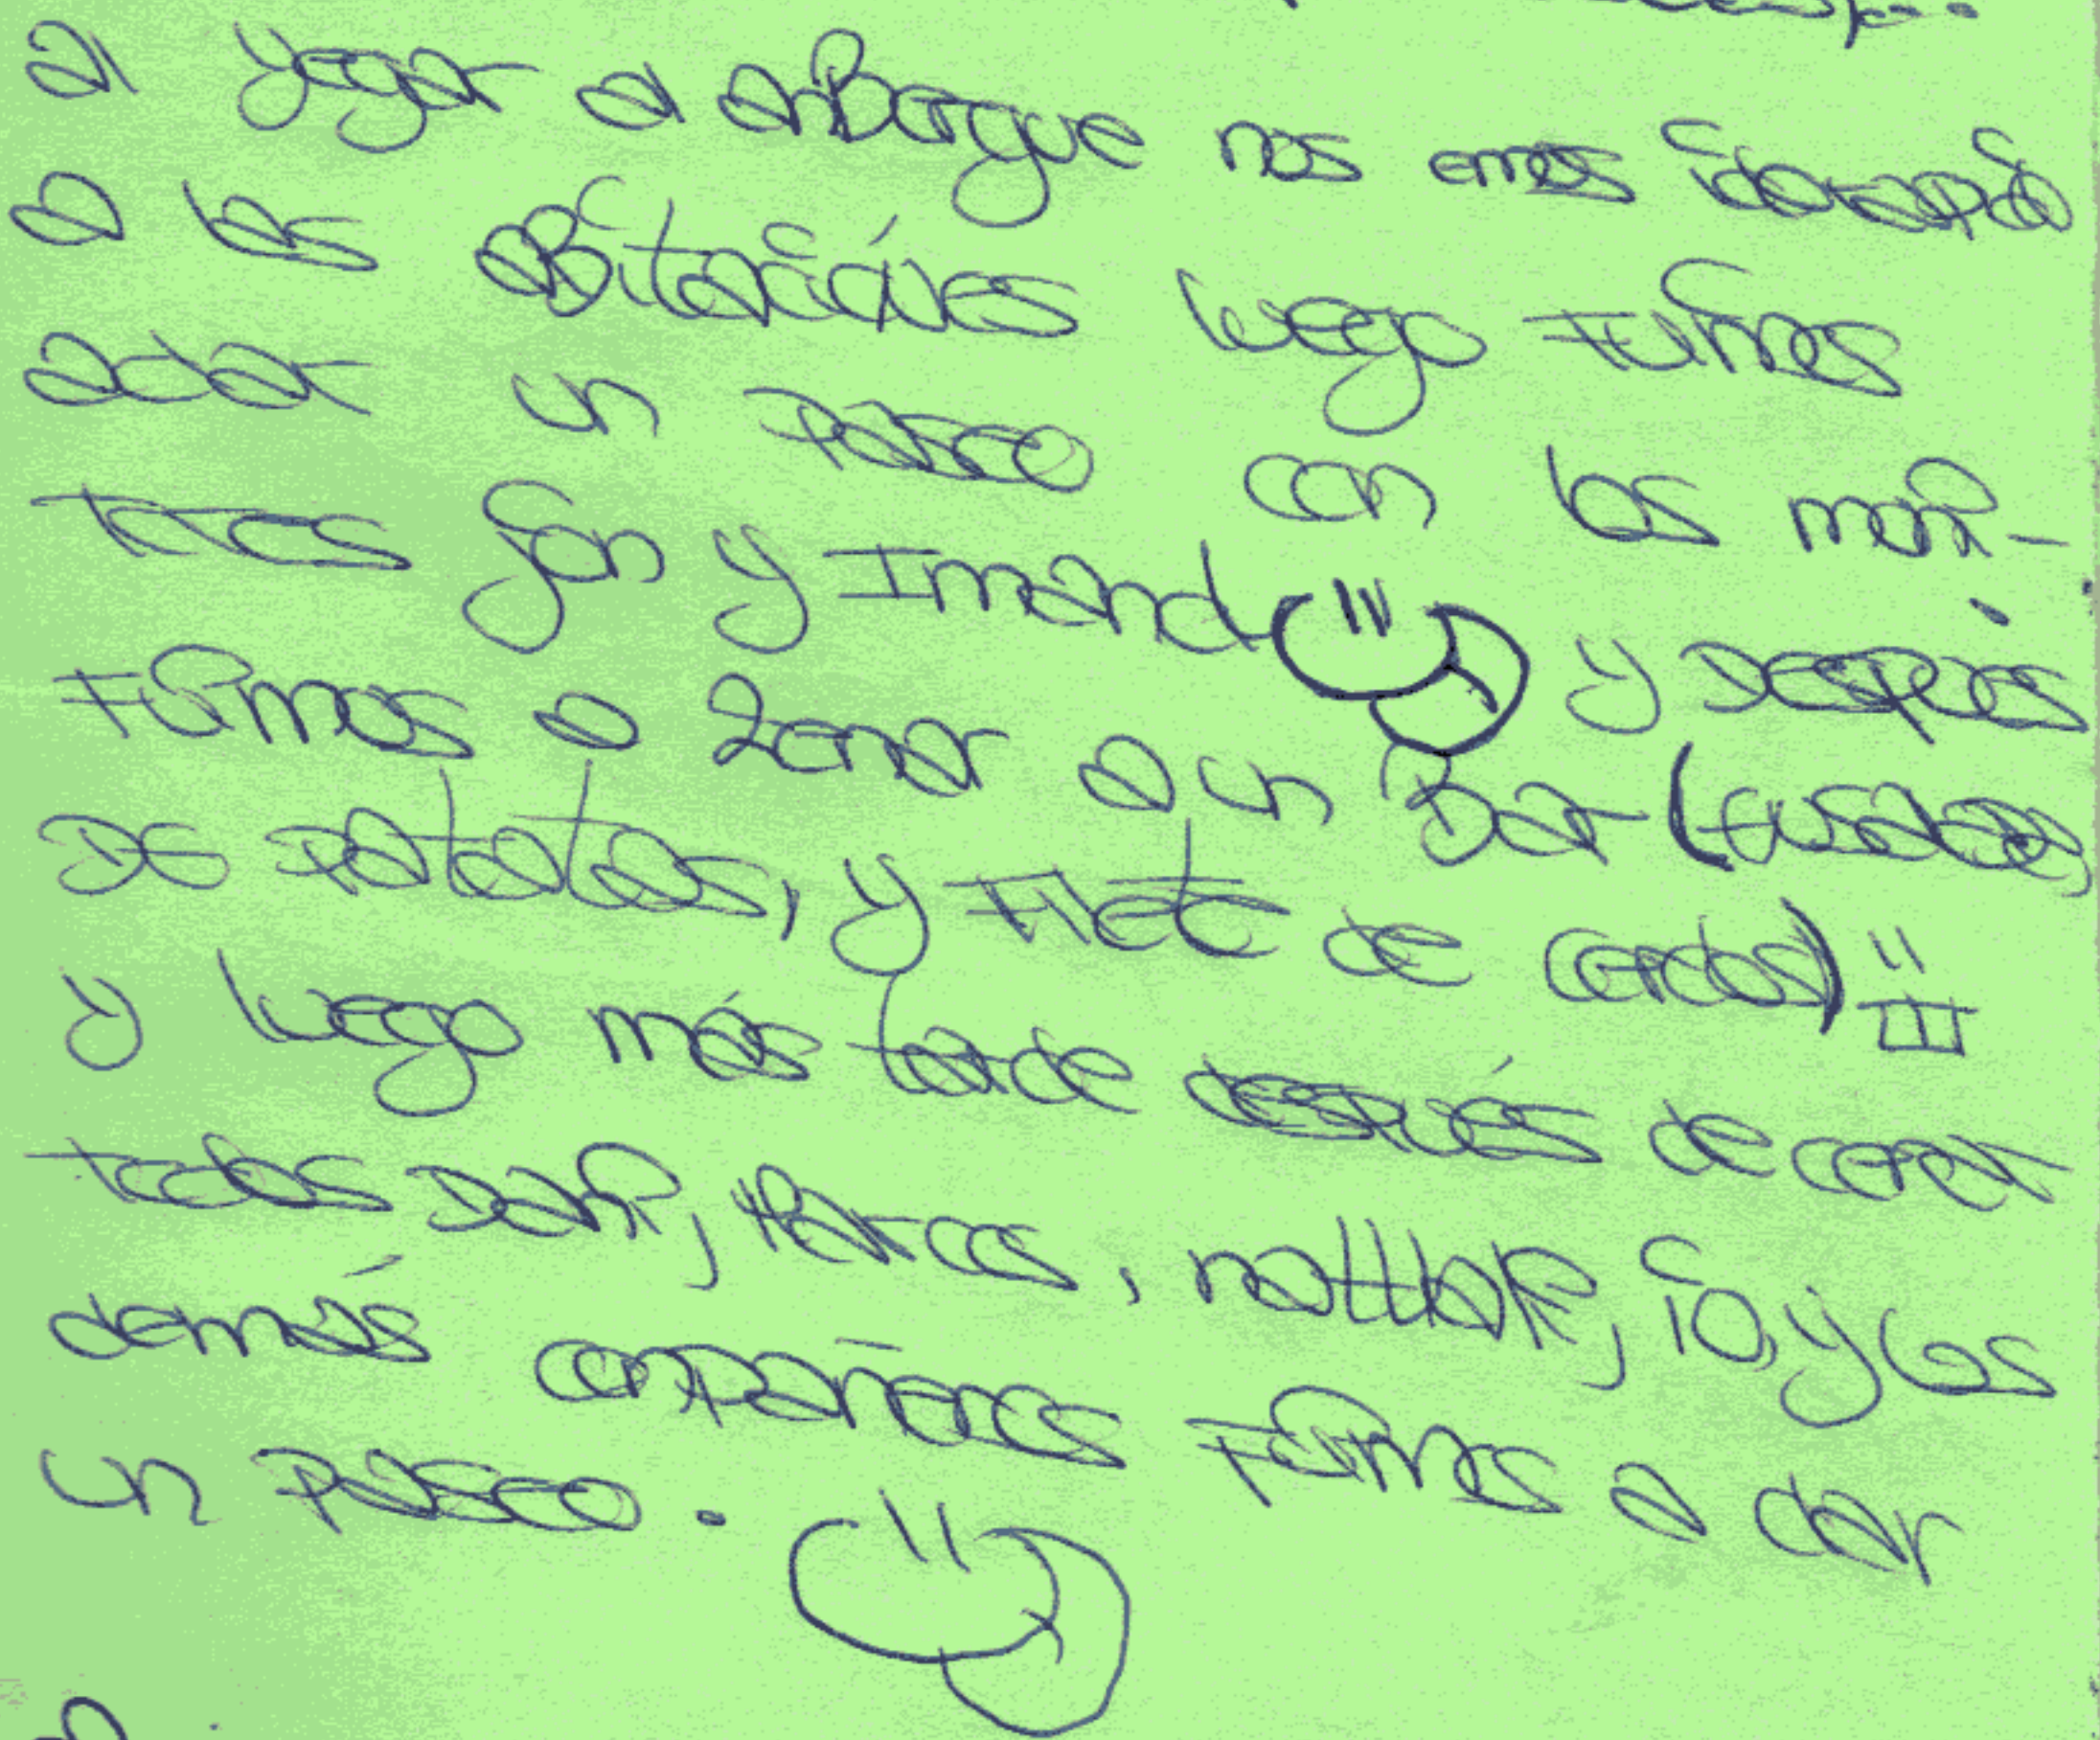 al yegar al anBergue nos emos ido rapido
a las aBitaciónes luego Fuimos
adar un Paseo con los moni-
tores Jon y Imanol y Despues
Fuimos a Zenar a un Bar
De Patatas, y Filete de Cerdos)
y luego más tarde después de cenar
todos Dani, Marcos, io, y los
demás compañeros Fuimos a dar
un Paseo.